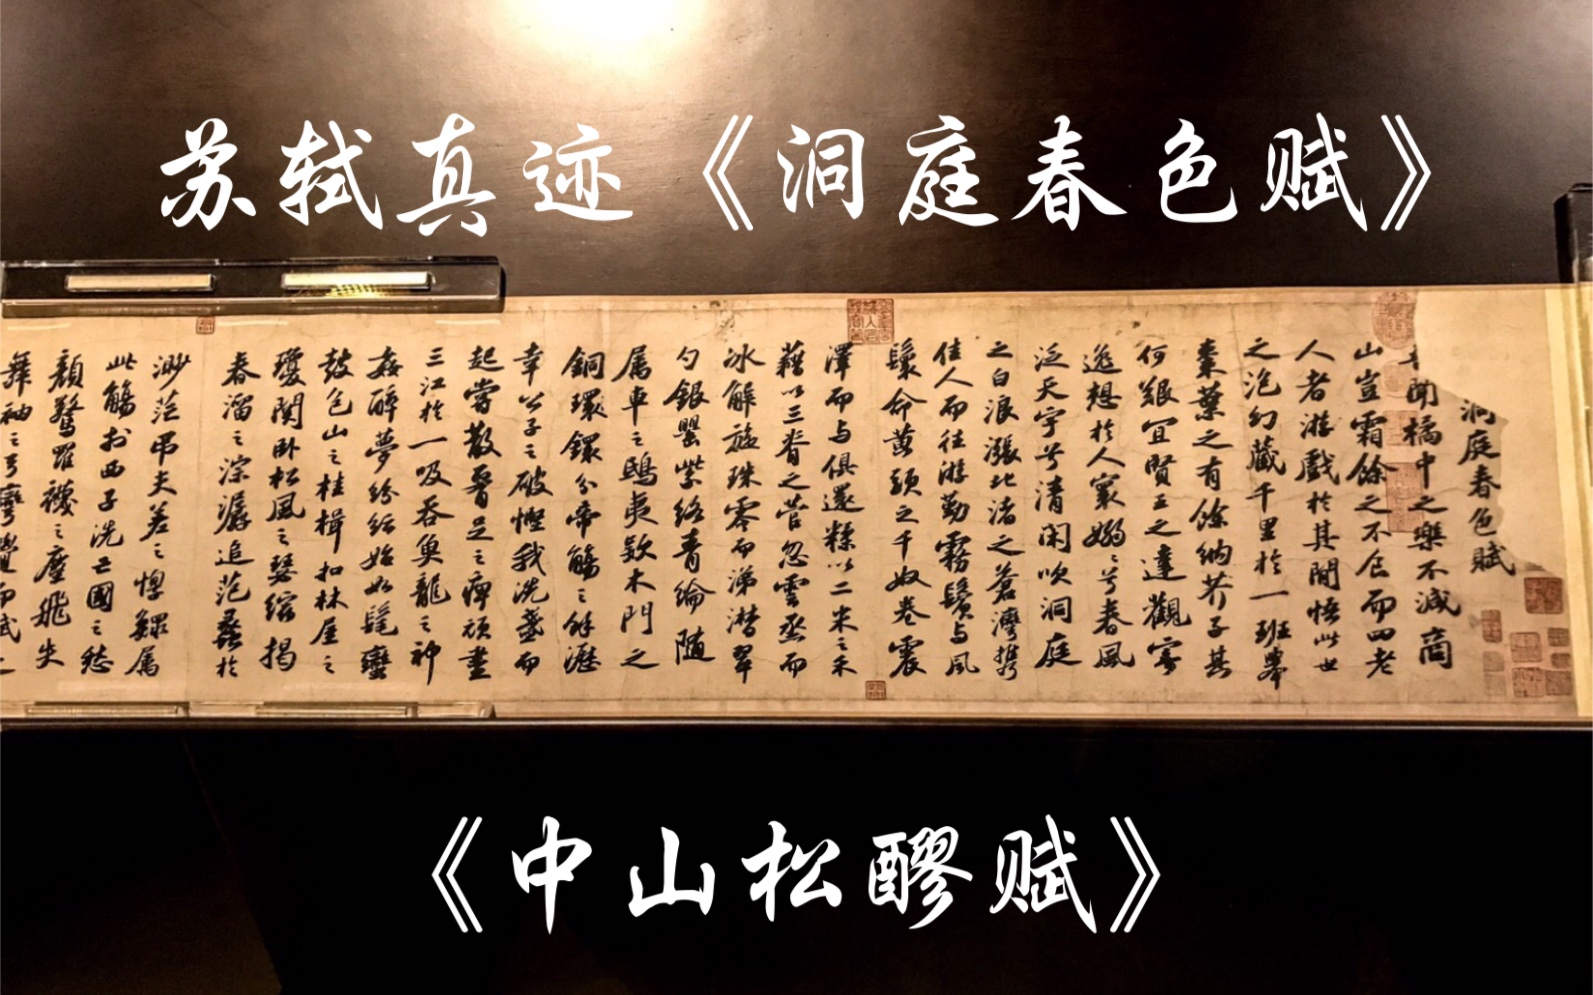 苏轼真迹《洞庭春色赋》
洞庭春色賦
聞橘中之樂不減商
山豈霜餘之不食而四老
人者游戲於其間悟此世
之泡幻藏千里於一班舉
棗葉之有餘納芥子其
何艱宜賢王之達觀寄
逸想於人寰嫋〻兮春風
泛天宇兮清閑吹洞庭
之白浪漲北渚之蒼灣携
佳人而往游勤霧鬢与風
鬟命黃頭之千奴卷震
澤而与俱還糅以二米之禾
藉以三脊之菅忽雲烝而
冰解旋珠零而涕潸翠
勺銀罌紫絡青綸隨
属車之鴟夷欵木門之
銅環鐶分帝觴之餘瀝
幸公子之破慳我洗盞而
起嘗散腰足之痹頑盡
三江於一吸吞魚龍之神
姦醉夢紛紜始如髦蠻
鼓包山之桂楫扣林屋之
瓊關卧松風之瑟縮揭
春溜之淙潺追范蠡於
渺茫弔夫差之惸鰥属
此觴於西子洗亡國之愁
顏驚羅襪之塵飛失
舞袖之弓彎覺而賦之
《中山松醪赋》